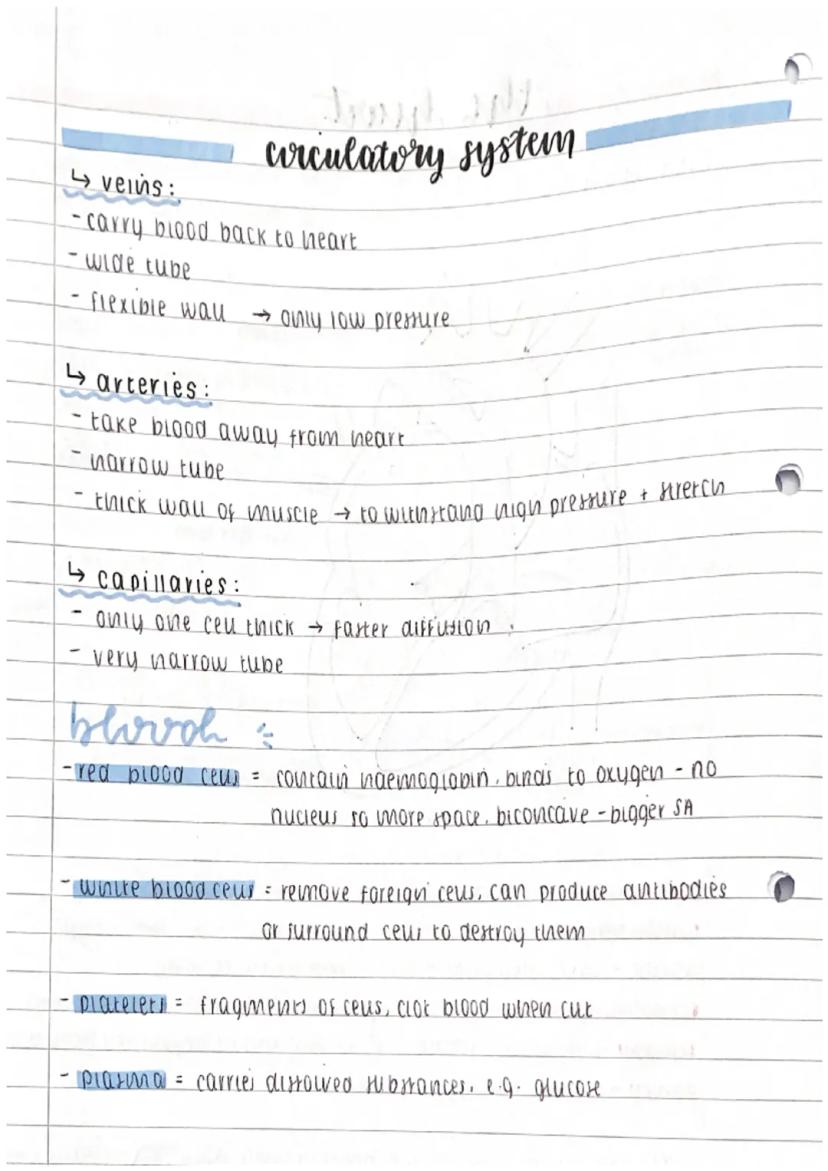 circulatory system
↳ veins:
- carry blood back to heart
- wide tube
- flexible wall → only low pressure
↳ arteries:
- take blood away from heart
- narrow tube
- thick wall of muscle → to withstand high pressure + stretch
↳ capillaries:
- only one cell thick → faster diffusion
- very narrow tube
blood
- red blood cells = contain haemoglobin, binds to oxygen - no
nucleus so more space, biconcave - bigger SA
- white blood cells = remove foreign cells, can produce antibodies
or surround cells to destroy them
- platelets = fragments of cells, clot blood when cut
- plasma = carries dissolved substances, e.g. glucose